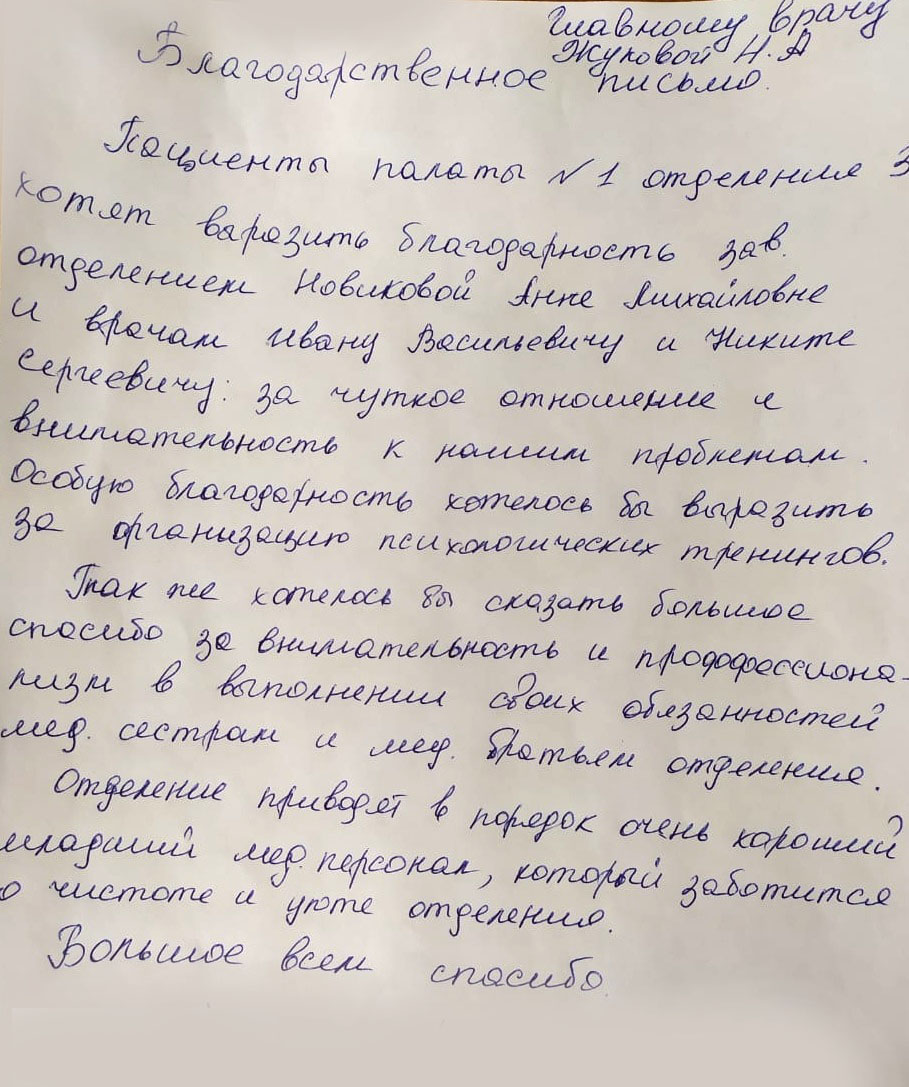 Главному врачу
Жуковой Н.А
Благодарственное письмо.
Пациенты палаты N 1 отделения 3
хотят варазить благодарность зав.
отделением Новиковой Анне Михайловне
и врачам Ивану Васильевичу и Никите
Сергеевичу: за чуткое отношение и
внимательность к нашим проблемам.
Особую благодарность хотелось бы выразить
за организацию психологических тренингов.
Так же хотелось бы сказать большое
спасибо за внимательность и продофессиона-
лизм в выполнении своих обязанностей
мед. сестрам и мед. братьем отделения.
Отделение приводят в порядок очень хароший
младший мед. персонал, который заботится
о чистоте и уюте отделения.
Большое всем спасибо.